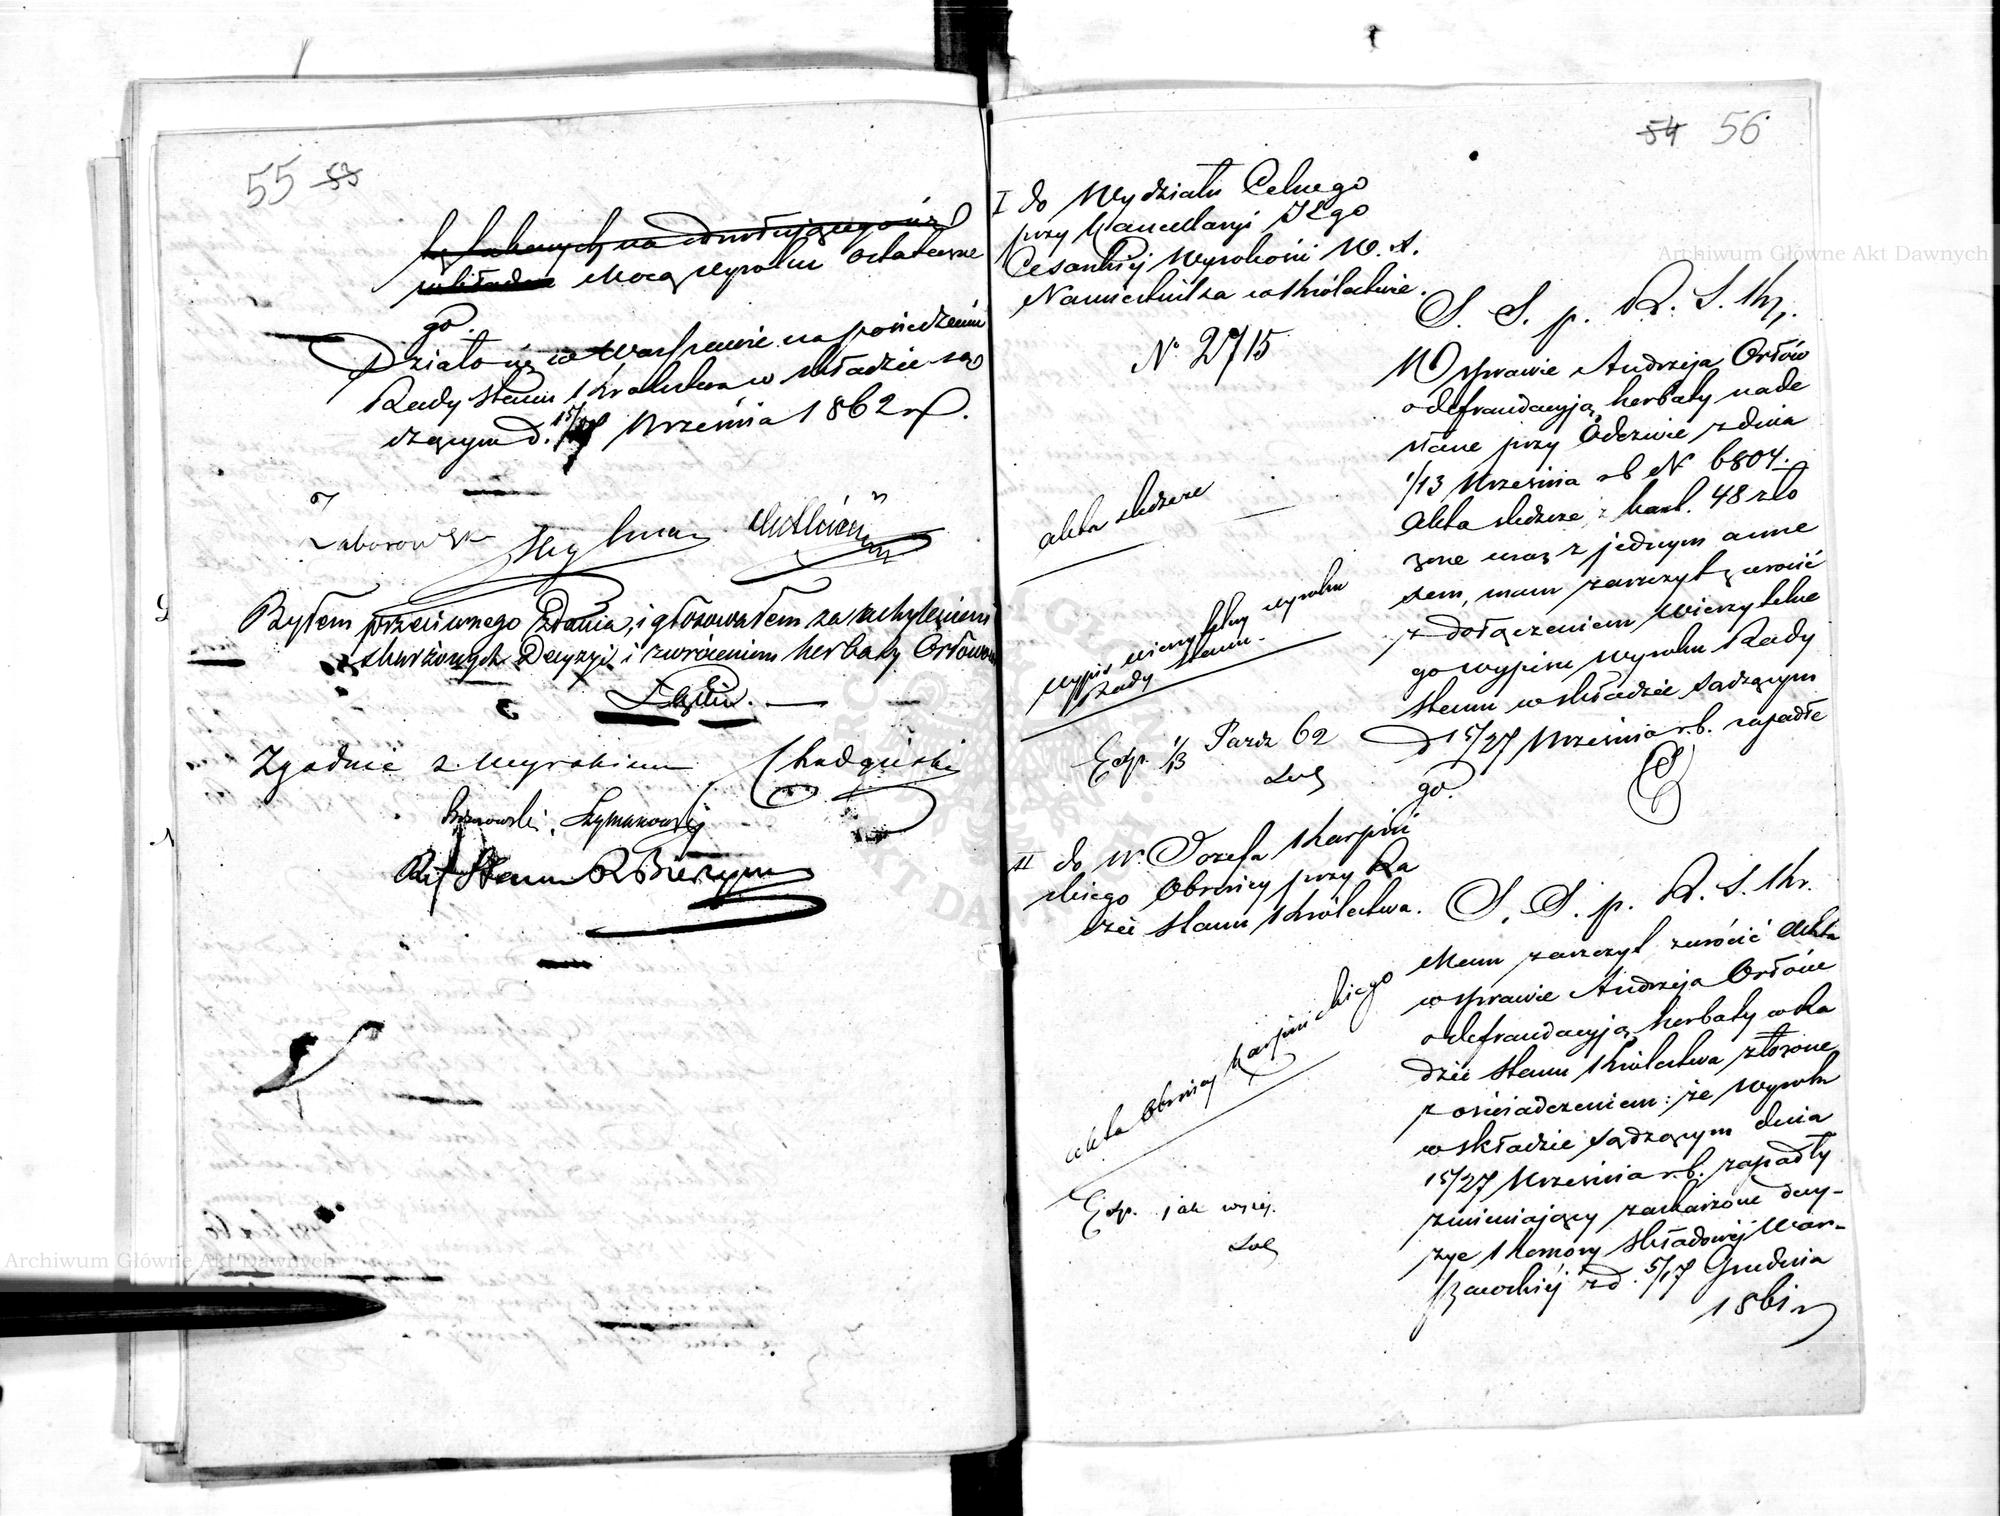 55 53
wkładu Mocą wyroku ostateczne
go.
Działo się w Warszawie na posiedzeniu
Rady Stanu Królestwa w składzie są
dzącym d. 15/27 Września 1862 r.
Zaborowski
Byłem przeciwnego Zdania, i głosowałem za uchyleniem
skarżonych Decyzji i zwróceniem herbaty Orłowowi
Zgodnie z wyrokiem
Szymanowski
Ref Stanu
54 56
I do Wydziału Celnego
przy Kancellaryi JEgo
Cesarskiej Wysokości W. X.
Namiestnika w Królestwie.
N° 2715
S. S. p. R. S. Kr.
W sprawie Andrzeja Orłow
o defraudacyją herbaty nade
słane przy Odezwie z dnia
1/13 Września r b N 6804.
Akta śledcze z kart. 48 zło
żone wraz z jednym anne
xem, mam zaszczyt zwrócić
z dołączeniem wierzytelne
go wypisu wyroku Rady
Stanu w składzie sądzącym
d 15/27 Września r.b. zapadłe
go.
akta śledcze
wypis wierzytelny wyroku
Rady Stanu.
Exp. 1/13 Paźdz 62
II do W. Józefa Karpiń
skiego Obrońcy przy Ra
dzie Stanu Królestwa.
S. S. p. R. S. Kr.
Mam zaszczyt zwrócić akta
w sprawie Andrzeja Orłow
o defraudacyją herbaty w Ra
dzie Stanu Królestwa złożone
z oświadczeniem: że wyrok
w składzie sądzącym dnia
15/27 Września r.b. zapadły
zmieniający zaskarżone decy-
zye Komory Składowej War-
szawskiej z d. 5/17 Grudnia
1861 r
akta Obrońcy Karpińskiego
Exp. jak wyżej.
Archiwum Główne Akt Dawnych
Archiwum Główne Akt Dawnych